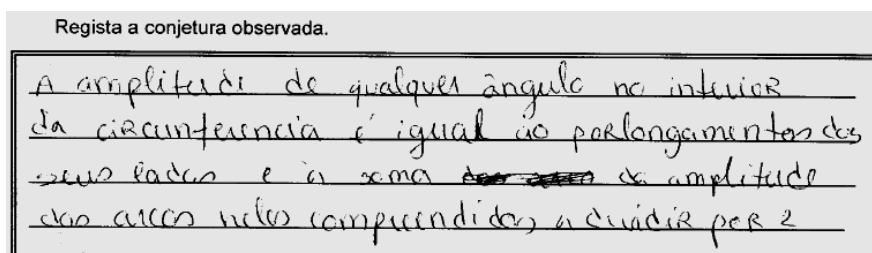 Regista a conjetura observada.
A amplitude de qualquer ângulo no interior
da circunferencia é igual ao porlongamentos dos
seus lados e à soma da amplitude
dos arcos neles compreendidos a dividir por 2